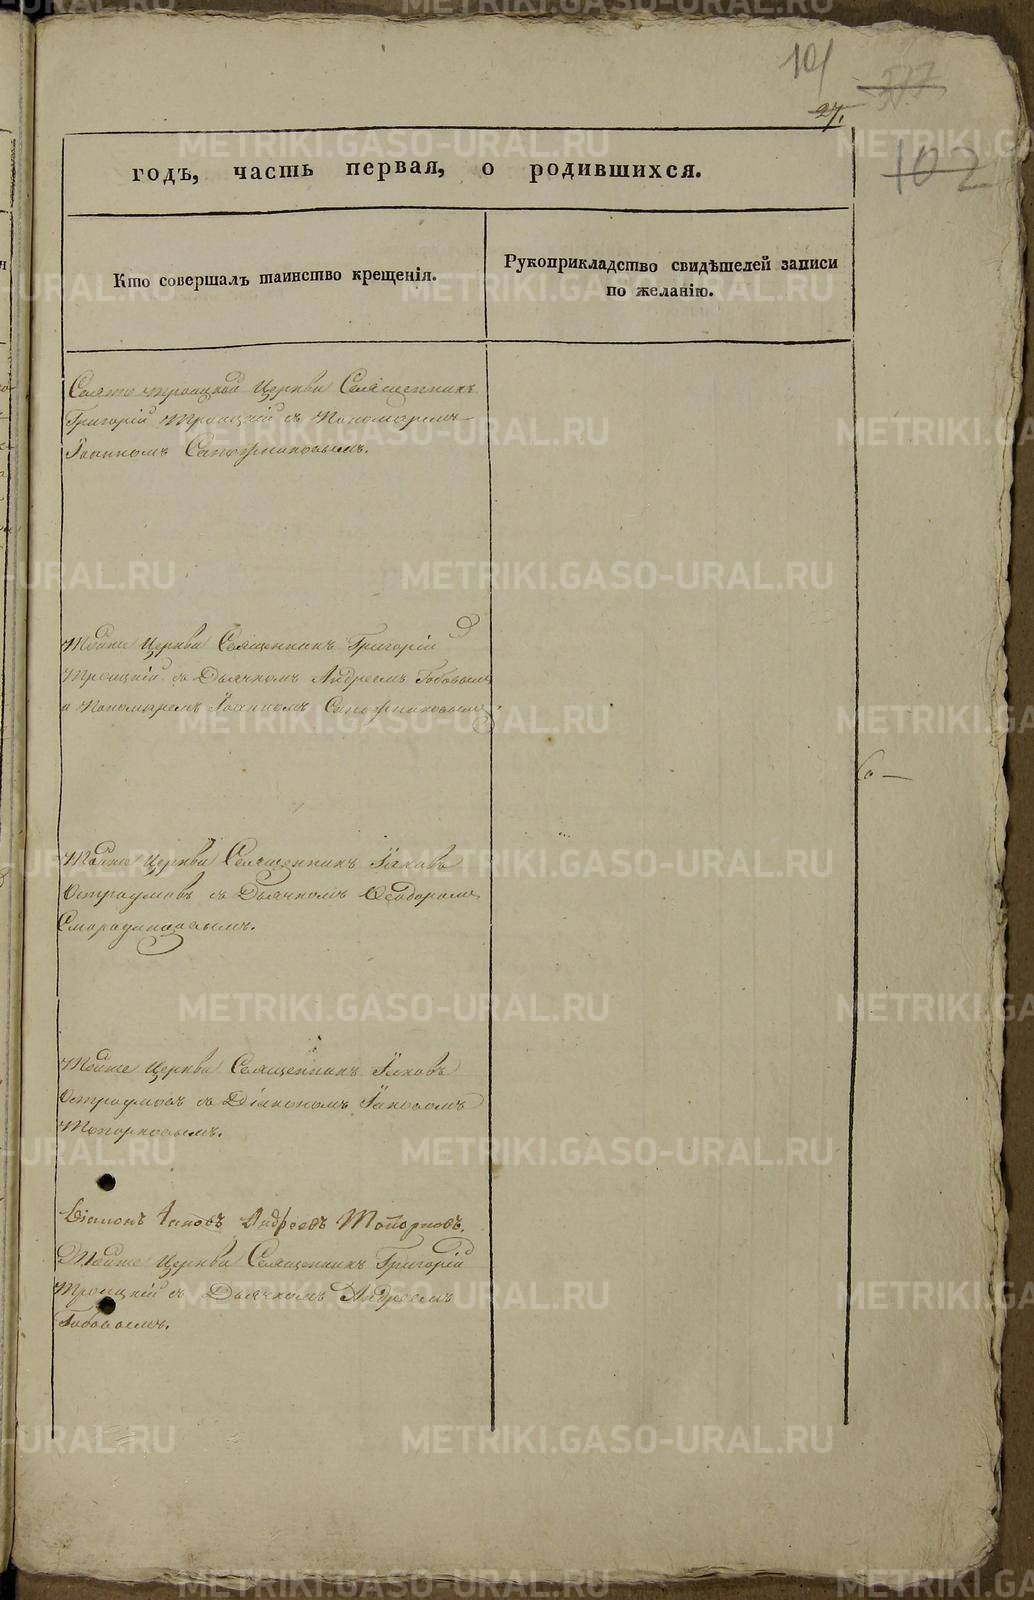 101
577
27.
102
годъ, часть первая, о родившихся.
Кто совершалъ таинство крещенія.
Рукоприкладство свидѣтелей записи
по желанію.
Свято Троицкой Церкви Священникъ
Григорій Троицкій съ Пономаремъ
Іоанномъ Сапожниковымъ.
Тойже Церкви Священникъ Григорій
Троицкій съ Дьячкомъ Андреемъ Бобовымъ
и Пономаремъ Іоанномъ Сапожниковымъ.
Тойже Церкви Священникъ Іаковъ
Остроумовъ съ Дьячкомъ Ѳеодоромъ
Смородинцовымъ.
Тойже Церкви Священникъ Іаковъ
Остроумовъ съ Діакономъ Іаковомъ
Топорковымъ.
Діаконъ Іаковъ Андреевъ Топорковъ.
Тойже Церкви Священникъ Григорій
Троицкій съ Дьячкомъ Андреемъ
Бобовымъ.
METRIKI.GASO-URAL.RU